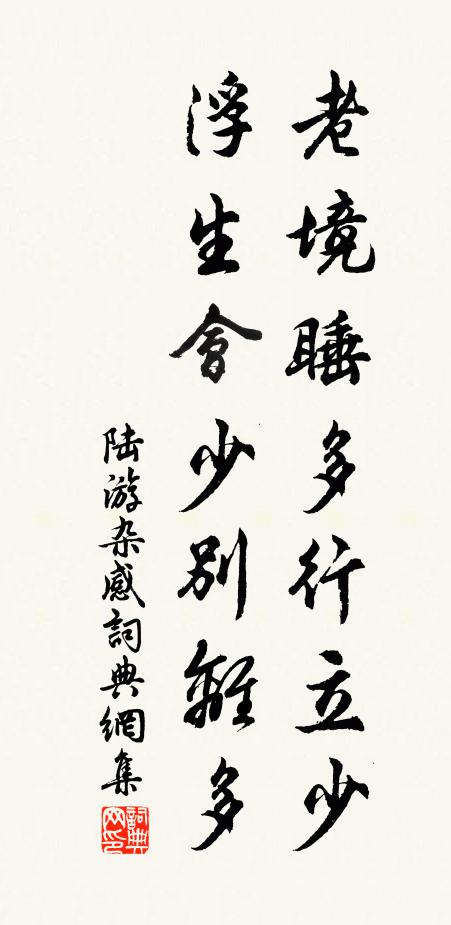 老境睡多行立少
浮生會少別離多
陆游杂感詞典網集
詞典网印